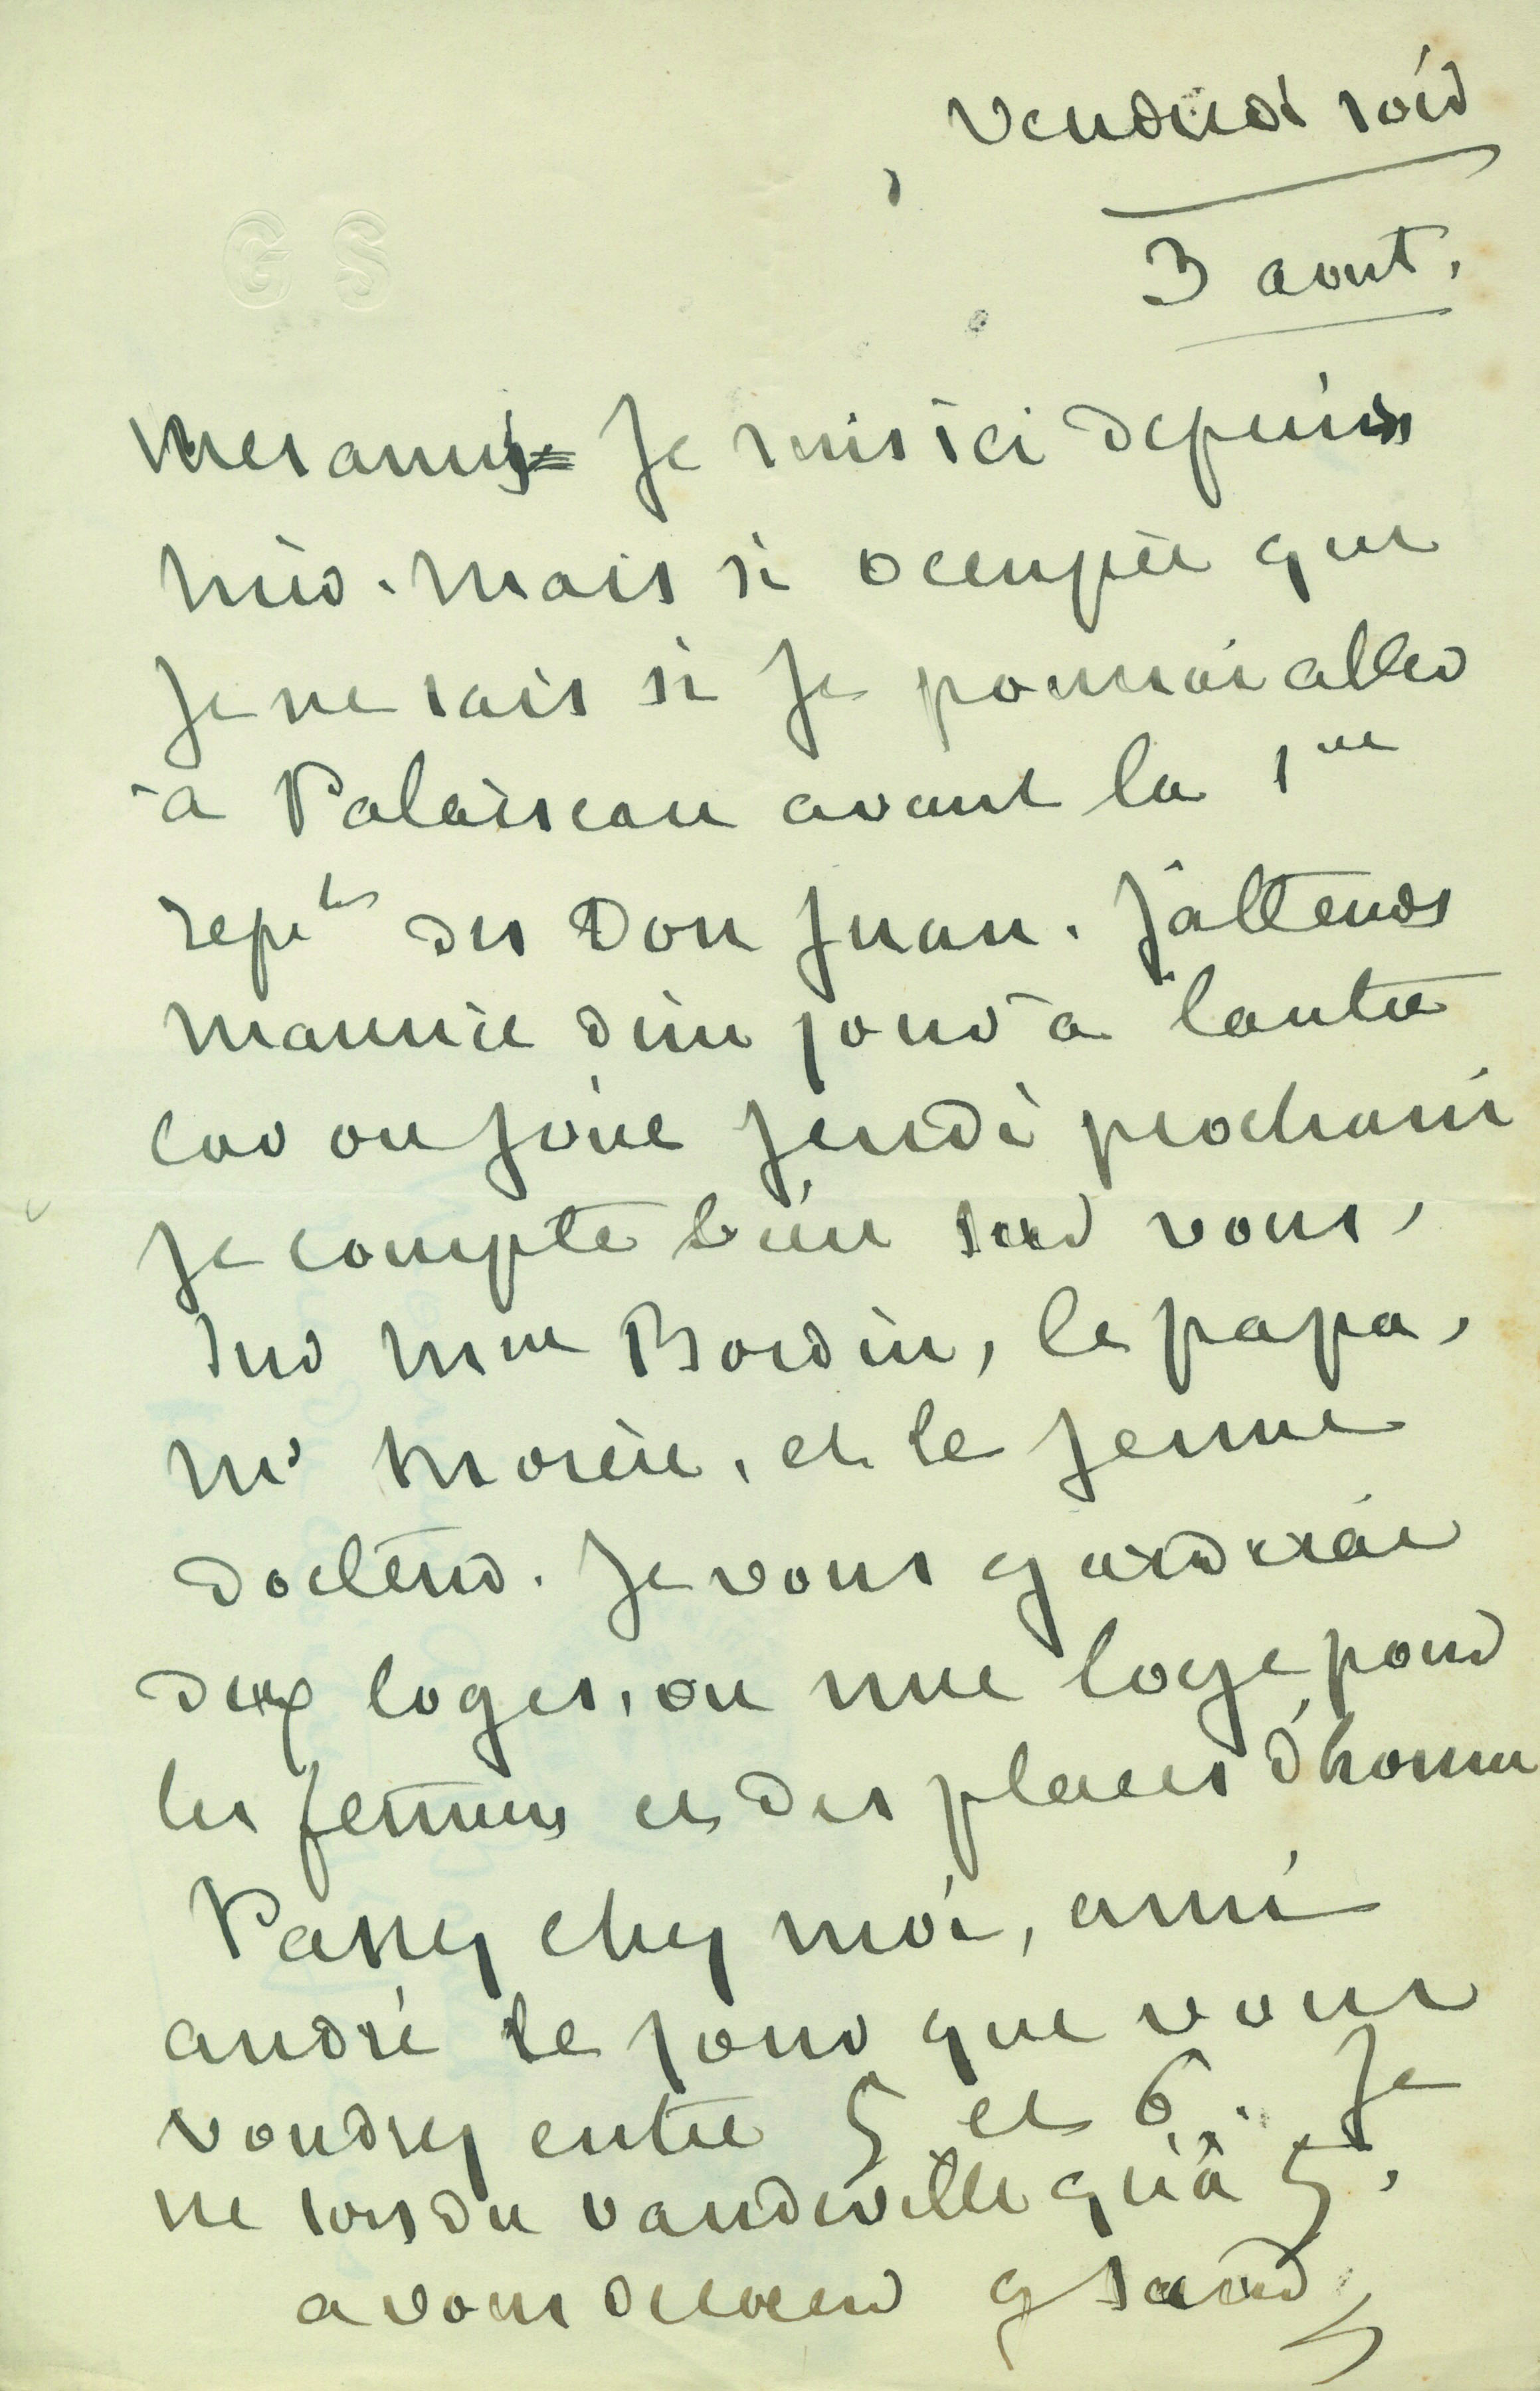 vendredi soir
3 aout.
G S
Mes amis = Je suis ici depuis
hier. Mais si occupée que
Je ne sais si Je pourrai aller
à Palaiseau avant la 1re
repon des Don Juan. J'attends
Maurice d'un jour à l'autre
car on joue Jeudi prochain
Je compte bien sur vous,
sur Mme Bordin, le papa,
Mr Morin, et le jeune
docteur. Je vous garderai
deux loges, ou une loge pour
les femmes et des places d'homme
Passez chez moi, ami
andré le jour que vous
voudrez entre 5 et 6. Je
ne sors du vaudeville qu'à 5,
a vous de cœur G Sand